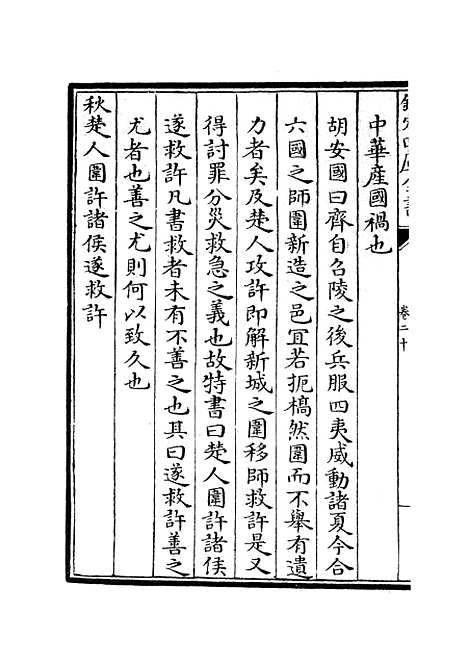 中華産國禍也
胡安國曰齊自召陵之後兵服四夷威動諸夏今合
六國之師圍新造之邑宜若扼槁然圍而不舉有遺
力者矣及楚人攻許即解新城之圍移師救許是又
得討罪分災救急之義也故特書曰楚人圍許諸侯
遂救許凡書救者未有不善之也其曰遂救許善之
尤者也善之尤則何以致久也
秋楚人圍許諸侯遂救許
卷二十